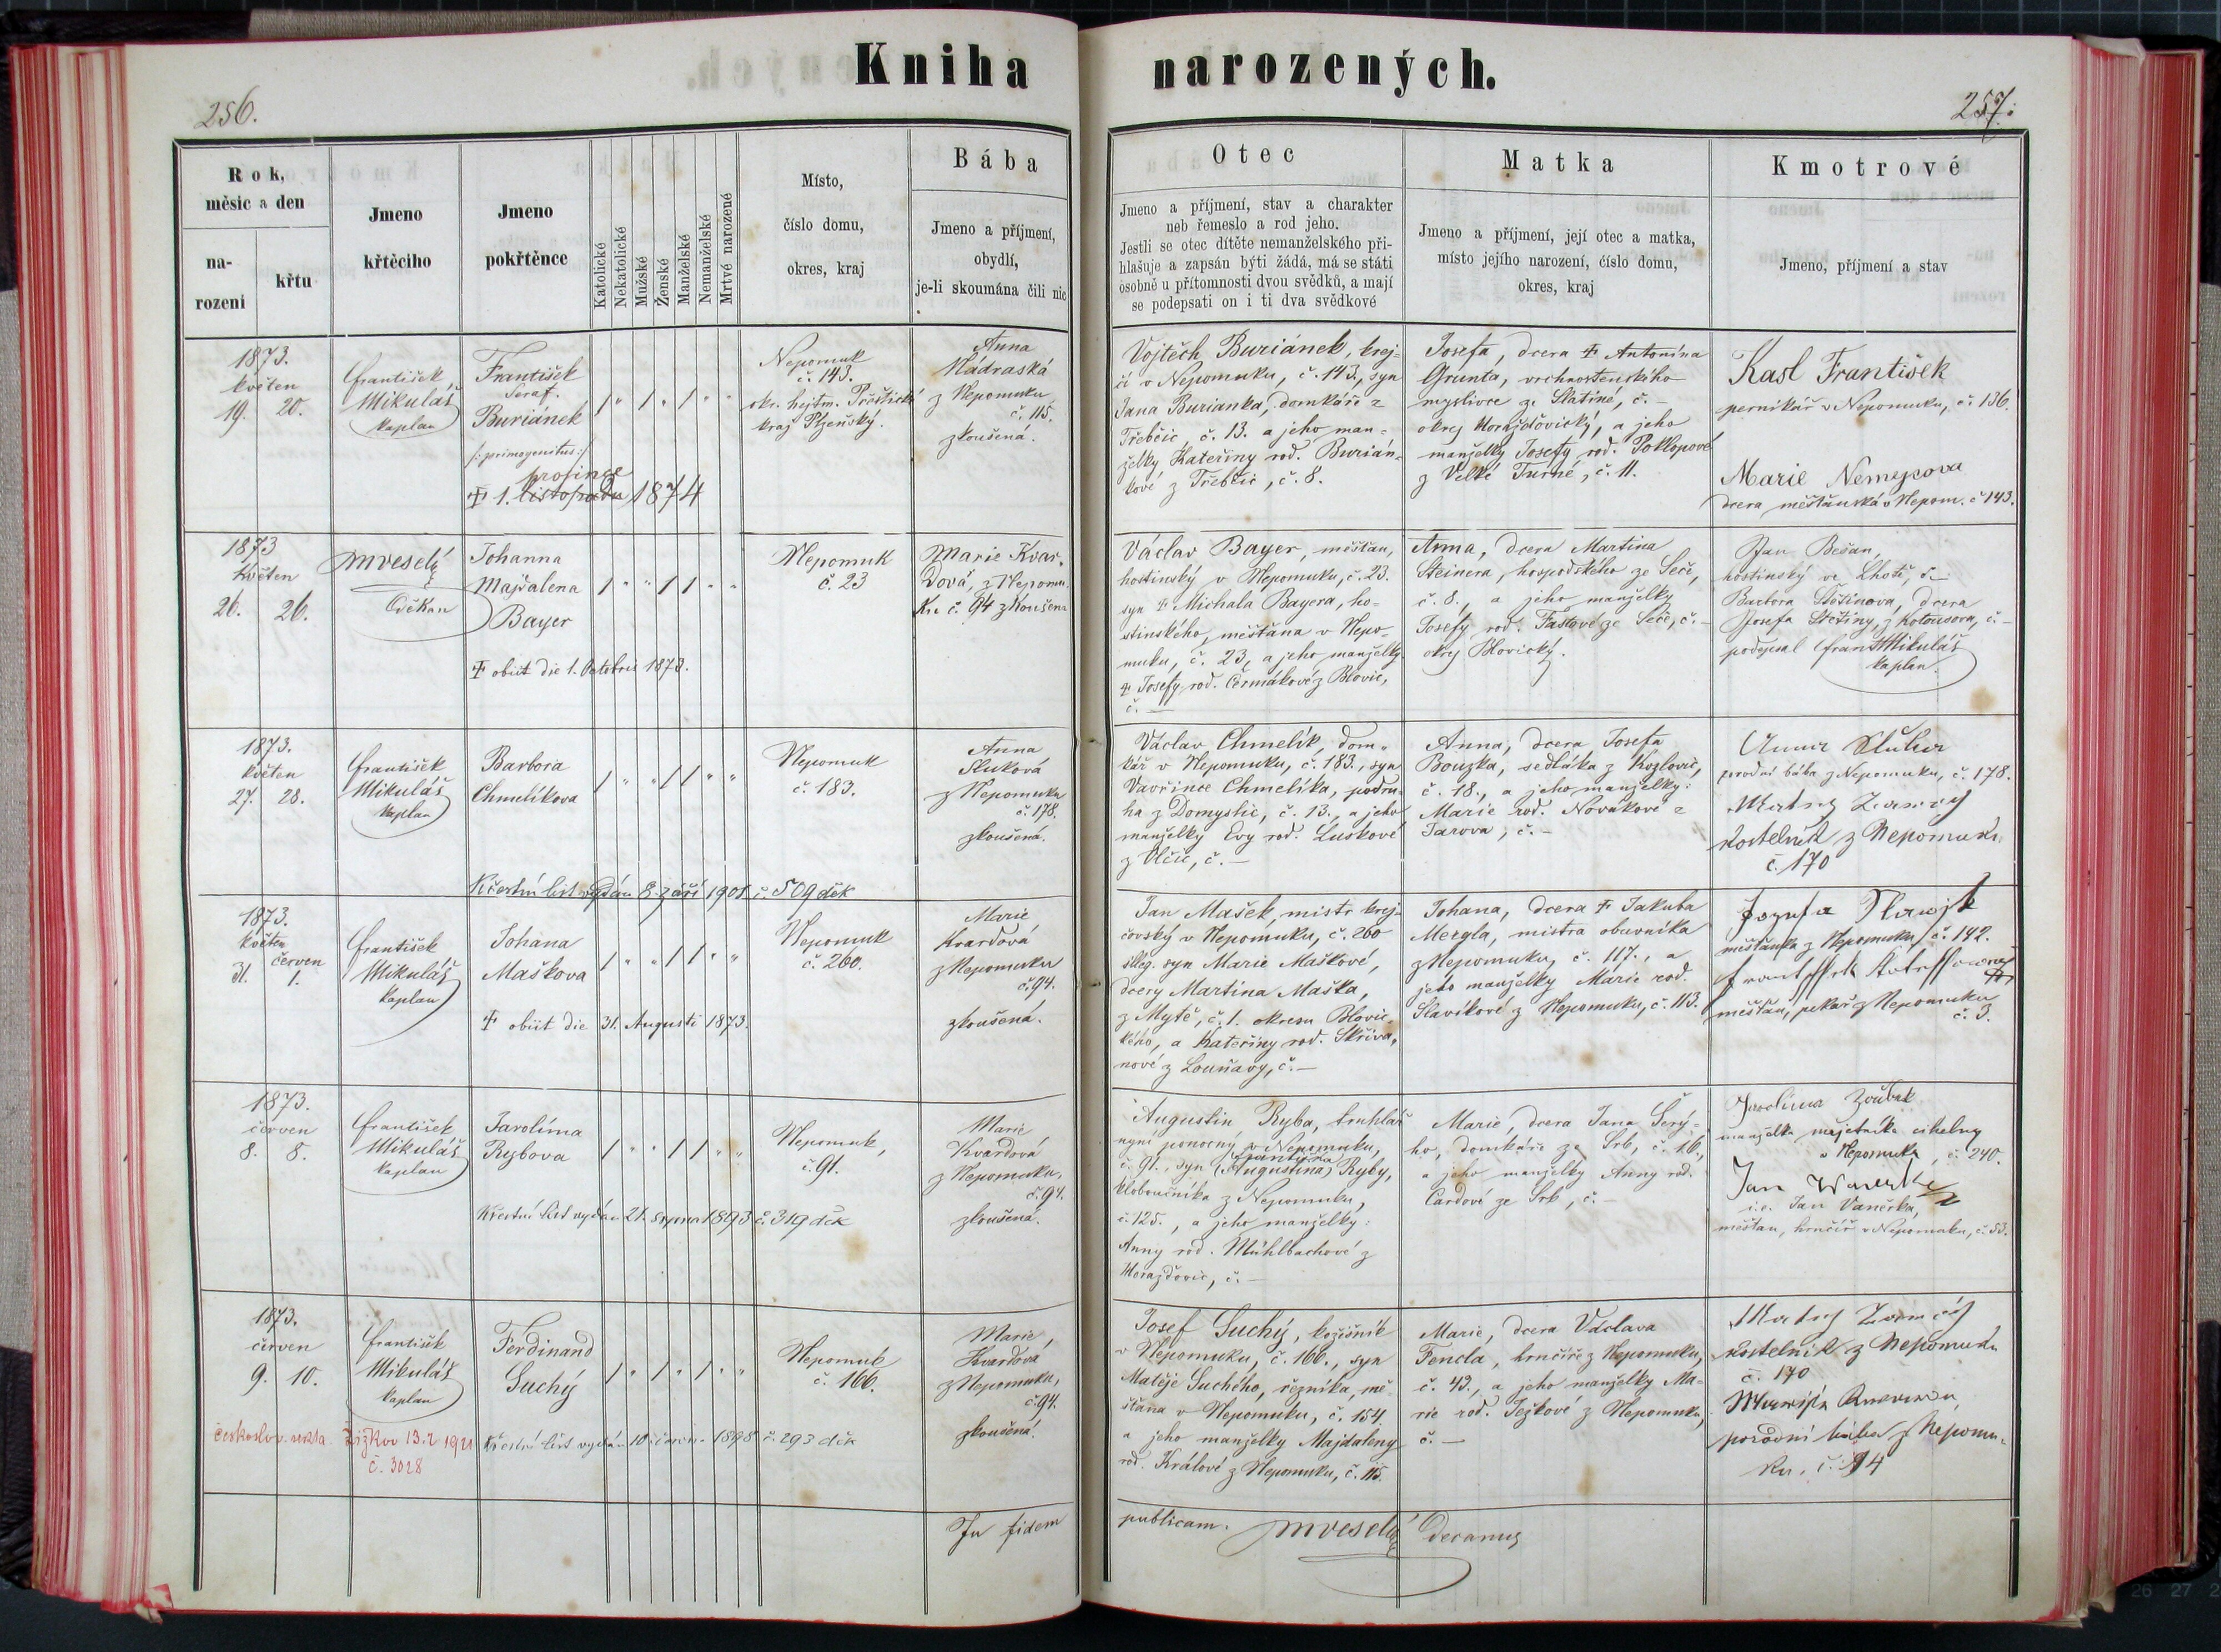 Kniha narozených.
256.
257.
Rok,
měsíc a den
na-
rození
křtu
Jmeno
křtěcího
Jmeno
pokřtěnce
Katolické
Nekatolické
Mužské
Ženské
Manželské
Nemanželské
Mrtvé narozené
Místo,
číslo domu,
okres, kraj
Bába
Jmeno a příjmení,
obydlí,
je-li skoumána čili nic
Otec
Jmeno a příjmení, stav a charakter
neb řemeslo a rod jeho.
Jestli se otec dítěte nemanželského při-
hlašuje a zapsán býti žádá, má se státi
osobně u přítomnosti dvou svědků, a mají
se podepsati on i ti dva svědkové
Matka
Jmeno a příjmení, její otec a matka,
místo jejího narození, číslo domu,
okres, kraj
Kmotrové
Jmeno, příjmení a stav
1873.
květen
19. 20.
František
Mikuláš
kaplan
František
Seraf.
Buriánek
/: primogenitus :/
prosince
† 1. listopadu 1874
Nepomuk
č. 143.
okr. hejtm. Přeštické
kraj Plzeňský.
Anna
Nádraská
z Nepomuku
č. 115.
zkoušená.
Vojtěch Buriánek, krej-
čí v Nepomuku, č. 143., syn
Jana Burianka, domkáře z
Třebčic, č. 13. a jeho man-
želky Kateřiny rod. Burián-
kové z Třebčic, č. 8.
Josefa, dcera † Antonína
Grunta, vrchnostenského
myslivce ze Slatiné, č. –
okres Horažďovický, a jeho
manželky Josefy rod. Poklopové
z Velké Turné, č. 11.
Kasl František
perníkář v Nepomuku, č. 136.
Marie Nemejcova
dcera měšťanská v Nepom. č 143.
1873
květen
26. 26.
mveselý
Děkan
Johanna
Majdalena
Bayer
† obiit die 1. Octobris 1873.
Nepomuk
č. 23
Marie Kvar-
dová z Nepomu-
ku č. 94 zkoušena
Václav Bayer, měšťan,
hostinský v Nepomuku, č. 23.
syn † Michala Bayera, ho-
stinského, měšťana v Nepo-
muku, č. 23, a jeho manželky
† Josefy rod. Čermákové z Blovic,
č. –
Anna, dcera Martina
Steinera, hospodského ze Seče,
č. 8., a jeho manželky
Josefy rod. Fastové ze Seče, č. –
okres Blovický.
Jan Bešan,
hostinský ve Lhotě, č. –
Barbora Štětinova, dcera
Josefa Štětiny, z Kotousova, č. –
podepsal Frant Mikuláš
kaplan.
1873.
květen
27. 28.
František
Mikuláš
kaplan
Barbora
Chmelíkova
Křestní list vydán 8. září 1901 č. 509 děk
Nepomuk
č. 183.
Anna
Sluková
z Nepomuku
č. 178.
zkoušená.
Václav Chmelík, dom-
kář v Nepomuku, č. 183., syn
Vavřince Chmelíka, podru-
ha z Domyslic, č. 13., a jeho
manželky Evy rod. Luskové
z Vlčic, č. –
Anna, dcera Josefa
Bouzka, sedláka z Kozlovic,
č. 18., a jeho manželky:
Marie rod. Novákové z
Jarova, č. –
Anna Sluka
porodní bába z Nepomuku, č. 178.
kostelník z Nepomuku
č. 170
1873.
květen
červen
31. 1.
František
Mikuláš
kaplan
Johana
Maškova
† obiit die 31. Augusti 1873.
Nepomuk
č. 260.
Marie
Kvardová
z Nepomuku
č. 94.
zkoušená.
Jan Mašek, mistr krej-
čovský v Nepomuku, č. 260
illeg. syn Marie Maškové,
dcery Martina Maška,
z Mytě, č. 1. okresu Blovic-
kého, a Kateřiny rod. Skřiva-
nové z Louňavy, č. –
Johana, dcera † Jakuba
Mergla, mistra obuvníka
z Nepomuku, č. 117., a
jeho manželky Marie rod.
Slavíkové z Nepomuku, č. 113.
měšťanka z Nepomuku, č. 142.
měšťan, pekař z Nepomuku
č. 3.
1873.
červen
8. 8.
František
Mikuláš
kaplan
Jarolíma
Rybova
Křestní list vydán 21. srpna 1893 č. 319 děk
Nepomuk,
č. 91.
Marie
Kvardová
z Nepomuku,
č. 94.
zkoušená.
Augustin Ryba, truhlář
nyní ponocný v Nepomuku,
č. 91., syn (Augustina) Ryby,
kloboučníka z Nepomuku,
č. 125., a jeho manželky:
Anny rod. Mühlbachové z
Horažďovic, č. –
Marie, dcera Jana Šerý-
ho, domkáře ze Srb, č. 16.,
a jeho manželky Anny rod.
Cardové ze Srb, č. –
Jarolíma Zoubek
manželka majetníka cihelny
v Nepomuku, č. 240.
i.e. Jan Vaněrka,
měšťan, hrnčíř v Nepomuku, č. 53.
1873.
červen
9. 10.
František
Mikuláš
kaplan
Ferdinand
Suchý
českoslov. sekta. Žižkov 13.2 1921
č. 3028
Křestní list vydán 10. června 1898 č. 293 děk
Nepomuk
č. 166.
Marie
Kvardová
z Nepomuku,
č. 94.
zkoušená.
Josef Suchý, kožišník
v Nepomuku, č. 166., syn
Matěje Suchého, řezníka, mě-
šťana v Nepomuku, č. 154.
a jeho manželky Majdaleny
rod. Králové z Nepomuku, č. 115.
Marie, dcera Václava
Fencla, hrnčíře z Nepomuku,
č. 42., a jeho manželky Ma-
rie rod. Ježkové z Nepomuku,
č. –
kostelník z Nepomuku
č. 170
porodní bába z Nepomu-
ku, č. 94
In fidem publicam. mveselý Decanus